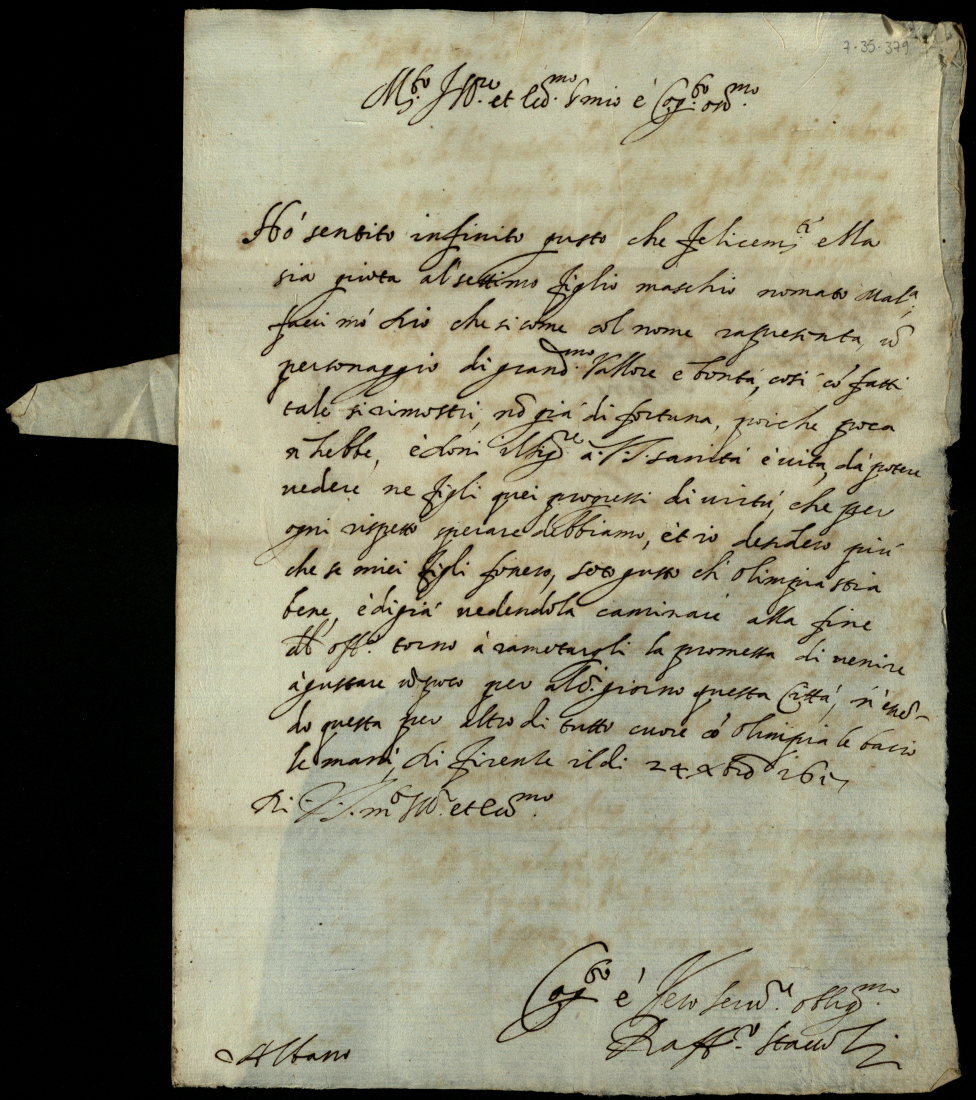 7-35-379
M.to Ill.re et Ecc.mo S. mio e Cog.to oss.mo
Hó sentito infinito gusto che felicem.te ella
sia giũta al settimo figlio maschio nomato
che si come col nome rapresenta, ũ
personaggio di grand.mo Vallore e bontá, cosí cõ fatti
tale si rimostri, nõ giá di fortuna, poiche poca
n'hebbe, è doni il Sig.re à V.S. sanitá è uita, dá potere
uedere ne figli quei progressi di uirtú, che per
ogni rispetto sperare debbiamo, èt io desidero piú
che se miei figli fonero, sẽto gusto ch' Olimpia stia
bene, è di giá uedendola caminare alla fine
dell' off.o torno à ramẽtargli la promessa di uenire
à gustare ũ poco per alcũ giorno questa Cittá,
do questa per altro di tutto cuore cõ Olimpia le bacio
le mani, di Firenze il di 24 Xbre 161
Di V.S. m.o Ill.re et Ecc.mo
Cog.to è Vero seru.re oblig.mo
Raff.o Staccoli
Albano